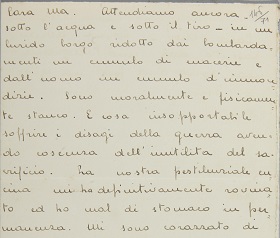 Cara Ma. Attendiamo ancora
sotto l'acqua e sotto il tiro - in un
lurido borgo ridotto dai bombarda-
menti un cumulo di macerie e
dall'uomo un cumulo d'immon-
dizie. Sono moralmente e fisicamen-
te stanco. E cosa insopportabile
soffrire i disagi della guerra aven-
do coscienza dell'inutilità del sa-
crificio. La nostra pestilenziale cu-
cina mi ha definitivamente rovina-
to ed ho mal di stomaco in per-
manenza. Mi sono corazzato di